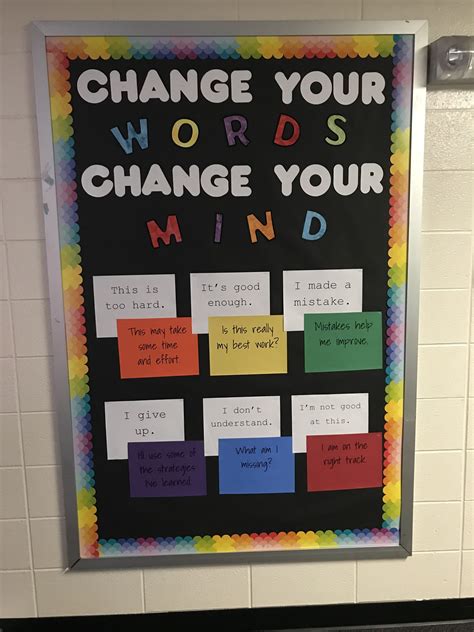 CHANGE YOUR
WORDS
CHANGE YOUR
MIND
This is
too hard.
This may take
some time
and effort.
It's good
enough.
Is this really
my best work?
I made a
mistake.
Mistakes help
me improve.
I give
up.
I'll use some of
the strategies
I've learned.
I don't
understand.
What am I
missing?
I'm not good
at this.
I am on the
right track.